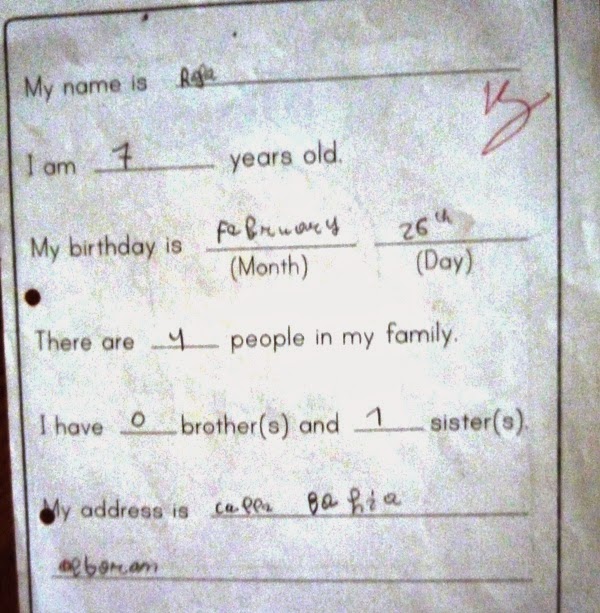 My name is Rafa
I am 7 years old.
My birthday is February 26th
(Month) (Day)
There are 4 people in my family.
I have 0 brother(s) and 1 sister(s).
My address is calle Bahia
alboran